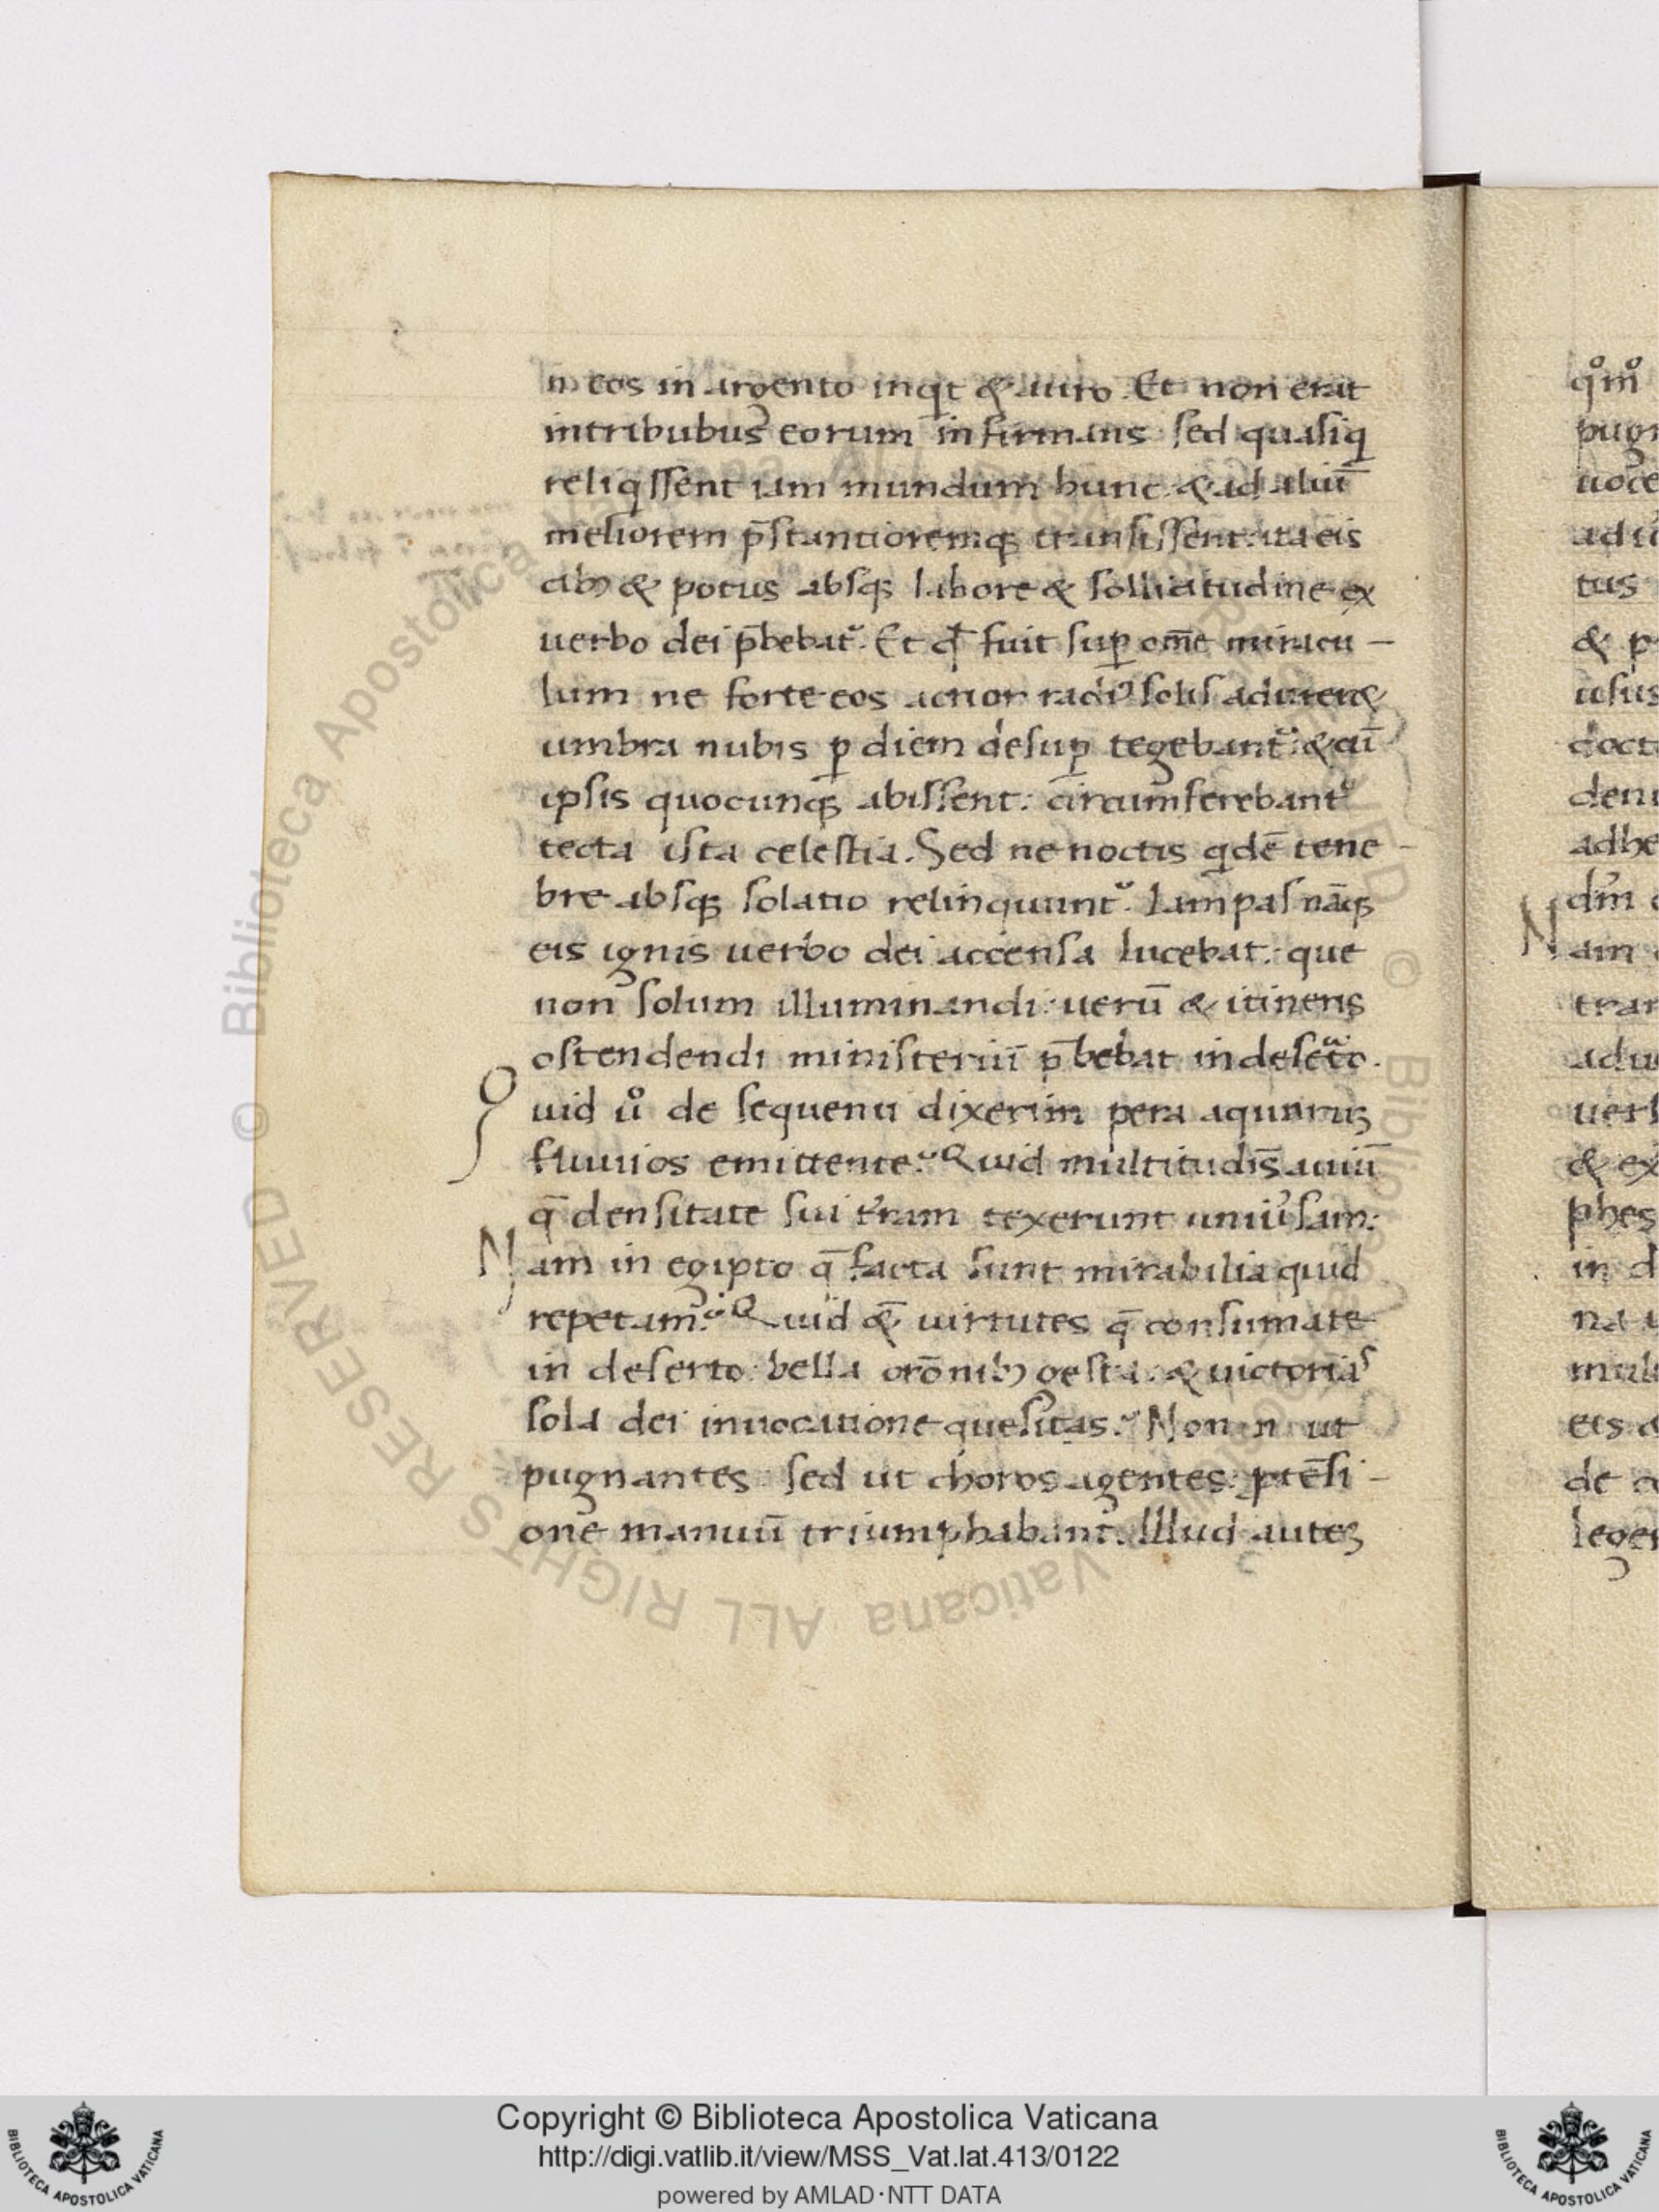 n̄ eos in argento inqͥt & auro. Et non erat
intribubus eorum infirmans sed quasi qͥ
reliqͥssent iam mundum hunc. & ad aliū
meliorem p̄stantioremqꝫ transissent. ita eis
cibꝫ & potus absqꝫ labore & sollicitudine ex
uerbo dei p̄bebat᷑. Et qđ fuit suꝑ om̄e miracu –
lum ne forte eos acrior radiꝰ solis adureret
umbra nubis ꝑ diem desuꝑ tegebant᷑: & cū
ipsis quocunqꝫ abissent: circumferebant᷑
tecta ista celestia. Sed ne noctis qͥdē tene –
bre absqꝫ solatio relinquunt᷑. Lampas nāqꝫ
eis ignis uerbo dei accensa lucebat: que
non solum illuminandi: uerū & itineris
ostendendi ministeriū p̄bebat indefecto.
Quid ů de sequenti dixerim petra aquarꝫ
fluuios emittente? Quid multitudīs auiū
q̄ densitate sui t̓ram texerunt uniu̓sam:
Nam in egipto q̄ facta sunt mirabilia quid
repetam? Quid & uirtutes q̄ consumate
in deserto: bella orōnibꝫ gesta: & uictorias
sola dei inuocatione quesitas? Non n̄ ut
pugnantes: sed ut choros agentes ꝓtēsi –
one manuū triumphabant. Illud auteꝫ
q̊m̊
pugn
uoce
tus
& p
usus
doct
denu
adhe
dm̄
Nam
tran
adu
uerb
& ex
phes
in d
na
mul
eis
de
leger
© Biblioteca Apostolica Vaticana ALL RIGHTS RESERVED
© Biblioteca Apostolica Vaticana ALL RIGHTS RESERVED
Copyright © Biblioteca Apostolica Vaticana
http://digi.vatlib.it/view/MSS_Vat.lat.413/0122
powered by AMLAD·NTT DATA
BIBLIOTECA APOSTOLICA VATICANA
BIBLIOTECA APOSTOLICA VATICANA